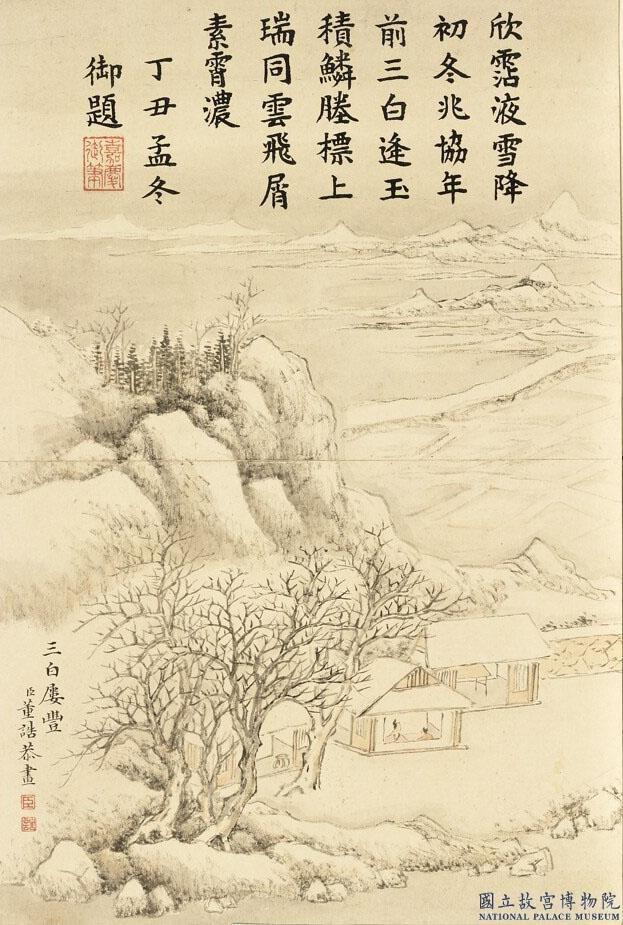 欣霑液雪降
初冬兆協年
前三白逢玉
積鱗塍標上
瑞同雲飛屑
素霄濃
丁丑孟冬
御題
嘉慶
御筆
三白屢豐
臣董誥恭畫
臣
誥
國立故宮博物院
NATIONAL PALACE MUSEUM